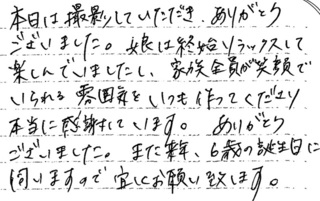 本日は撮影していただき、ありがとう
ございました。娘は終始リラックスして
楽しんでいましたし、家族全員が笑顔で
いられる雰囲気をいつも作ってくださり
本当に感謝しています。ありがとう
ございました。また来年、6歳の誕生日に
伺いますので宜しくお願い致します。